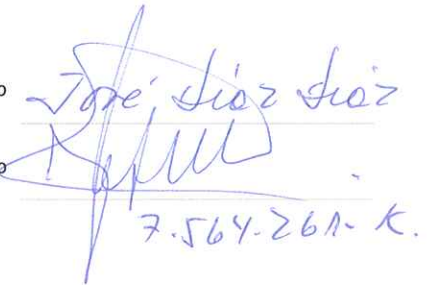 o José Díaz Díaz
o
7.564.261-K.